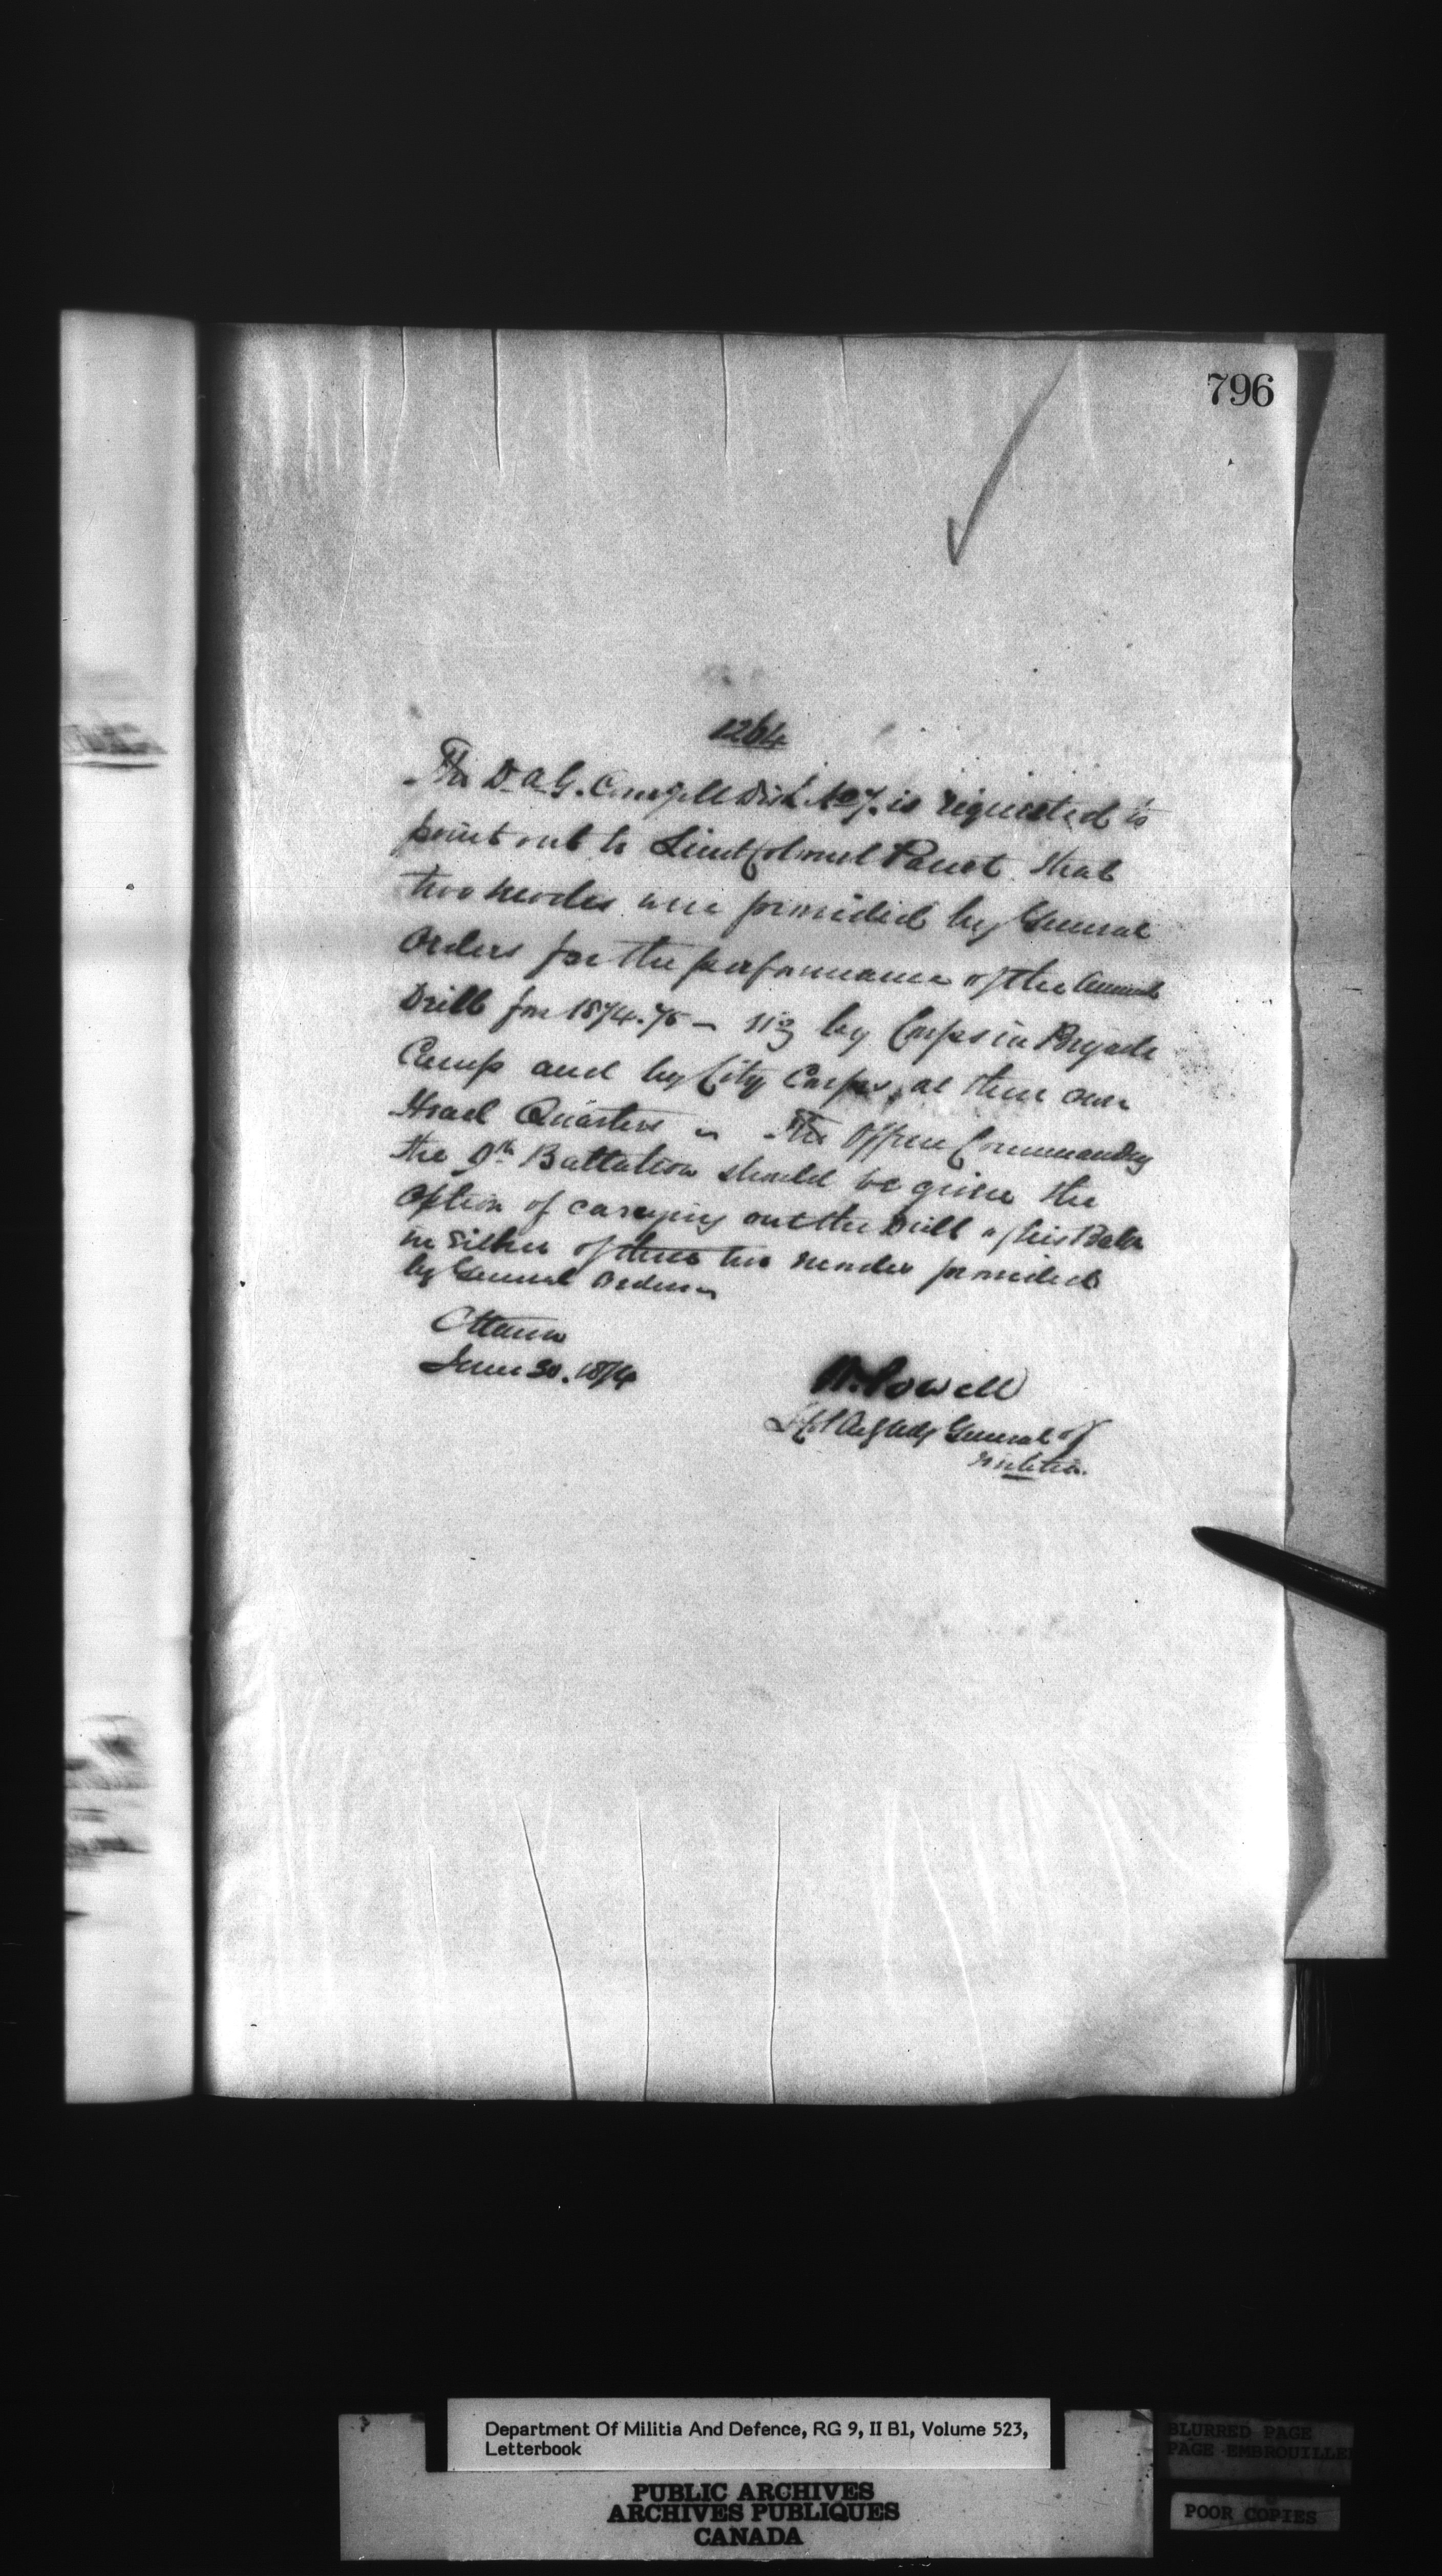 796
1264
The D.A.G. Comg Mil Dist No 7. is requested to
point out to Lieut Colonel Panet that
two modes were provided by General
Orders for the performance of the Annual
Drill for 1874.75 – viz by Corps in Brigade
Camp and by City Corps, at their own
Head Quarters – The Officer Commanding
the 9th Battalion should be given the
option of carrying out the Drill of his Battn
in either of these two modes provided
by General Orders –
Ottawa
June 30. 1874
W. Powell
Lt Col Actg Adj General of
Militia.
Department Of Militia And Defence, RG 9, II B1, Volume 523,
Letterbook
PUBLIC ARCHIVES
ARCHIVES PUBLIQUES
CANADA
BLURRED PAGE
PAGE EMBROUILLEE
POOR COPIES